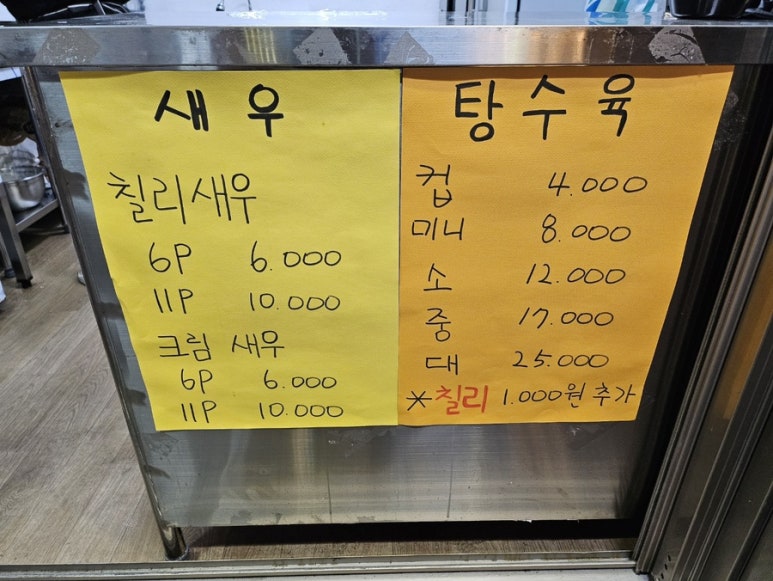 새우
칠리새우
6P 6.000
11P 10.000
크림 새우
6P 6.000
11P 10.000
탕수육
컵 4.000
미니 8.000
소 12.000
중 17.000
대 25.000
*칠리 1.000원 추가